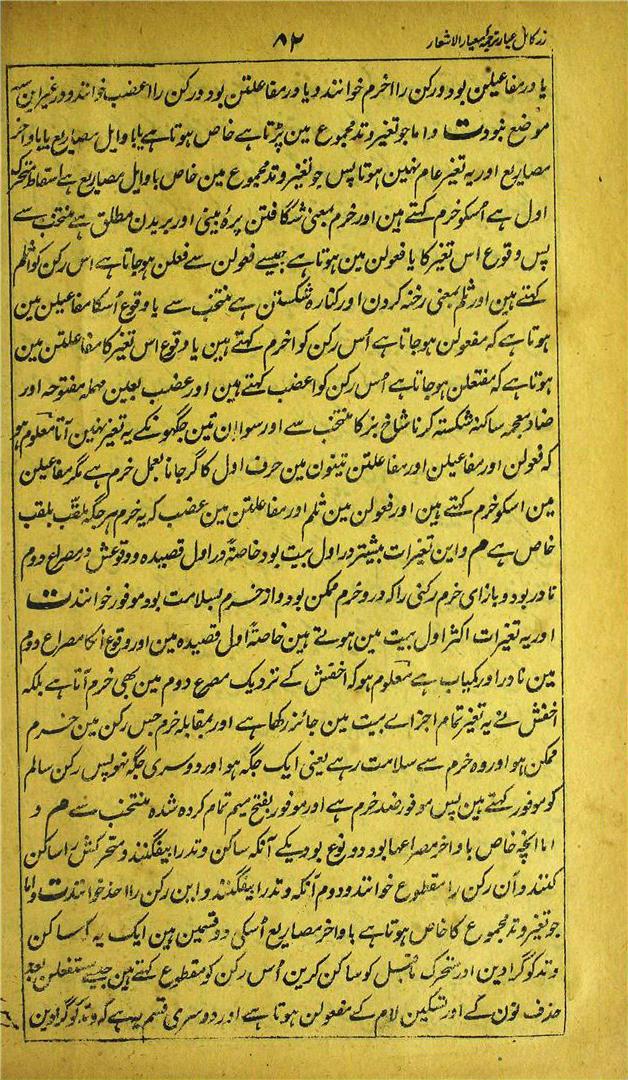 زر کامل عیار ترجمہ معیار الاشعار
۸۲
یا در مفاعیلن بود و رکن را اخرم خوانند و یا در مفاعلتن بود و رکن را اعضب خوانند و در غیر این سہ
موضع نبود ت و اما جو تغیر وتد مجموع مین پڑتا ہے خاص ہوتا ہے یا با وایل مصاریع یا با واخر
مصاریع اور یہ تغیر عام نہین ہوتا پس جو تغیر وتد مجموع مین خاص با وایل مصاریع ہے اسقاط متحرک
اول ہے اُسکو خرم کہتے ہین اور خرم بمعنی شگافتن پرۂ بینی اور بریدن مطلق ہے منتخب سے
پس وقوع اس تغیر کا یا فعولن مین ہوتا ہے جیسے فعولن سے فعلن ہو جاتا ہے اس رکن کو اثلم
کہتے ہین اور ثلم بمعنی رخنہ کردن اور کنارہ شکستن ہے منتخب سے یا وقوع اُسکا مفاعیلن مین
ہوتا ہے کہ مفعولن ہو جاتا ہے اُس رکن کو اخرم کہتے ہین یا وقوع اس تغیر کا مفاعلتن مین
ہوتا ہے کہ مفتعلن ہو جاتا ہے اُس رکن کو اعضب کہتے ہین اور عضب بعین مہملہ مفتوحہ اور
ضاد معجمہ ساکنہ شکستہ کرنا شاخ بز کا منتخب سے اور سوا ان تین جگہونکے یہ تغیر نہین آتا معلوم ہو
کہ فعولن اور مفاعیلن اور مفاعلتن تینون مین حرف اول کا گر جانا بعمل خرم ہے مگر مفاعیلن
مین اسکو خرم کہتے ہین اور فعولن مین ثلم اور مفاعلتن مین عضب کہ یہ خرم ہر جگہ ملقب بلقب
خاص ہے م و این تغیرات بیشتر در اول بیت بود خاصۃً در اول قصیدہ و وقوعش در مصراع دوم
نادر بود و بازای خرم رکنی را کہ در و خرم ممکن بود و از خرم بسلامت بود موفور خوانند ت
اور یہ تغیرات اکثر اول بیت مین ہوتے ہین خاصۃً اول قصیدہ مین اور وقوع اُنکا مصراع دوم
مین نادر اور کمیاب ہے معلوم ہو کہ اخفش کے نزدیک مصرع دوم مین بھی خرم آتا ہے بلکہ
اخفش نے یہ تغیر تمام اجزاے بیت مین جائز رکھا ہے اور بمقابلہ خرم جس رکن مین خرم
ممکن ہو اور وہ خرم سے سلامت رہے یعنی ایک جگہ ہو اور دوسری جگہ نہو پس رکن سالم
کو موفور کہتے ہین پس موفور ضد خرم ہے اور موفور بفتح میم تمام کردہ شدہ منتخب سے م و
اما انچہ خاص با واخر مصراعہا بود دو نوع بود یکے آنکہ ساکن وتد را بیفگنند و متحرکش را ساکن
کنند و آن رکن را مقطوع خوانند و دوم آنکہ وتد را بیفگنند و این رکن را احذ خوانند ت و اما
جو تغیر وتد مجموع کا خاص ہوتا ہے با واخر مصاریع اُسکی دو قسمین ہین ایک یہ کہ ساکن
وتد کو گرا دین اور متحرک ماقبل کو ساکن کرین اُس رکن کو مقطوع کہتے ہین جیسے مستفعلن بعد
حذف نون کے اور تسکین لام کے مفعولن ہوتا ہے اور دوسری قسم یہ ہے کہ وتد کو گرا دین